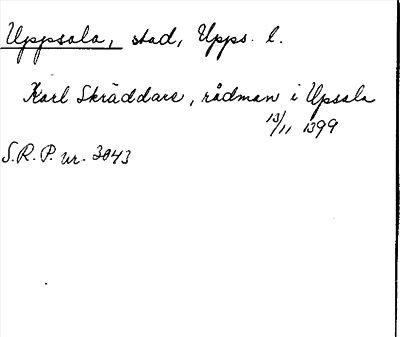 Uppsala, stad, Upps. l.
Karl Skräddare, rådman i Upsala
13/11 1399
S.R.P. nr. 3043